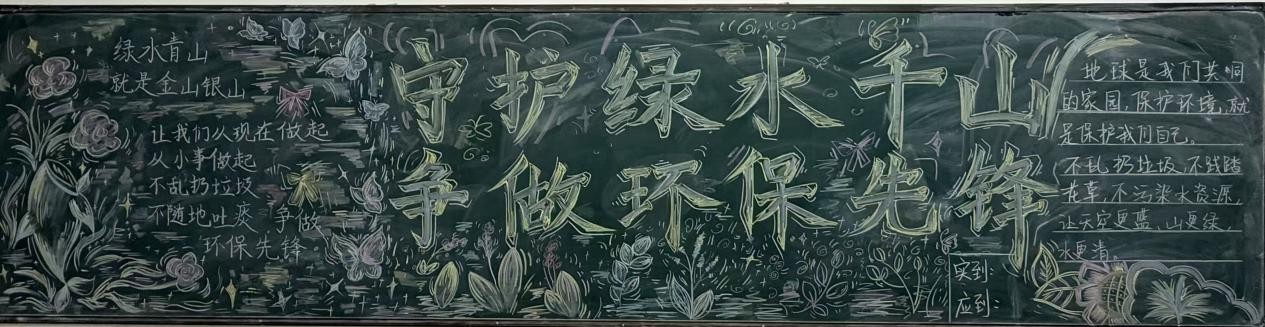 绿水青山
就是金山银山
让我们从现在做起
从小事做起
不乱扔垃圾
不随地吐痰 争做
环保先锋
守护绿水千山
争做环保先锋
地球是我们共同
的家园,保护环境,就
是保护我们自己。
不乱扔垃圾 不践踏
花草,不污染水资源,
让天空更蓝,山更绿,
水更清。
实到:
应到: